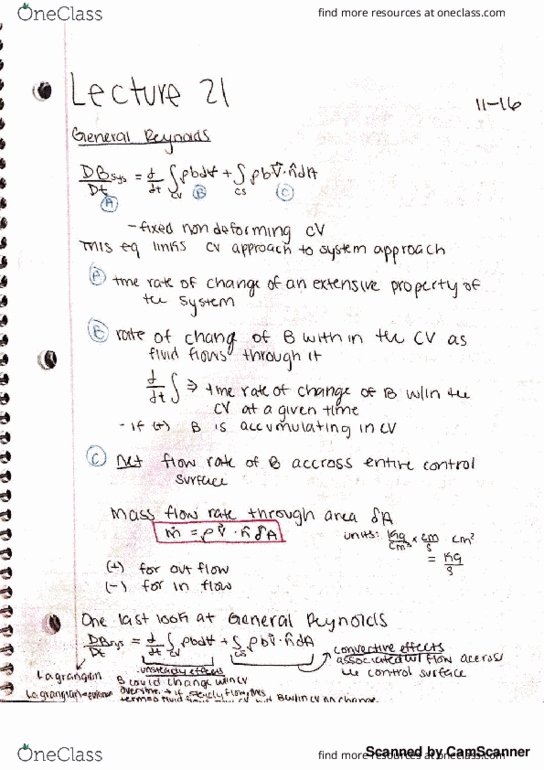 OneClass
find more resources at oneclass.com
Lecture 21
11-16
General Reynolds
DBsys/Dt = d/dt ∫cv ρbdV + ∫cs ρbV̂·n̂dA
A B C
- fixed nondeforming CV
This eq links CV approach to system approach
A time rate of change of an extensive property of
the system
B rate of change of B within the CV as
fluid flows through it
d/dt ∫ ⇒ time rate of change of B w/in the
CV at a given time
- if (+) B is accumulating in CV
C Net flow rate of B accross entire control
surface
Mass flow rate through area δA
ṁ = ρV̂·n̂ δA
units: kg/cm³ × cm/s cm²
= kg/s
(+) for out flow
(-) for in flow
One last look at General Reynolds
DBsys/Dt = d/dt ∫cv ρbdV + ∫cs ρbV̂·n̂dA
convective effects
associated w/ flow across
the control surface
Lagrangian
unsteady effects
B could change w/in CV
over time → if steady flow, this
B w/in CV no change
OneClass
find more resources at oneclass.com
Scanned by CamScanner